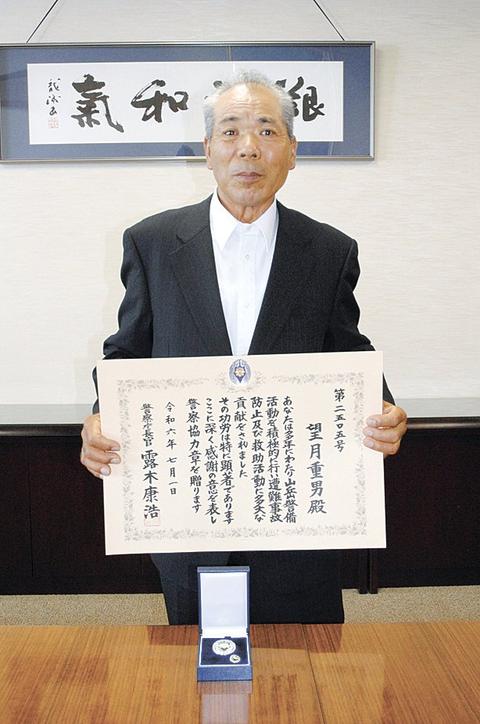 和
氣
第二五〇五号
望月重男殿
あなたは多年にわたり山岳警備
活動を積極的に行い遭難事故
防止及び救助活動に多大な
貢献をされました
その功労は特に顕著であります
ここに深く感謝の意を表し
警察協力章を贈ります
令和六年七月一日
警察庁長官 露木康浩